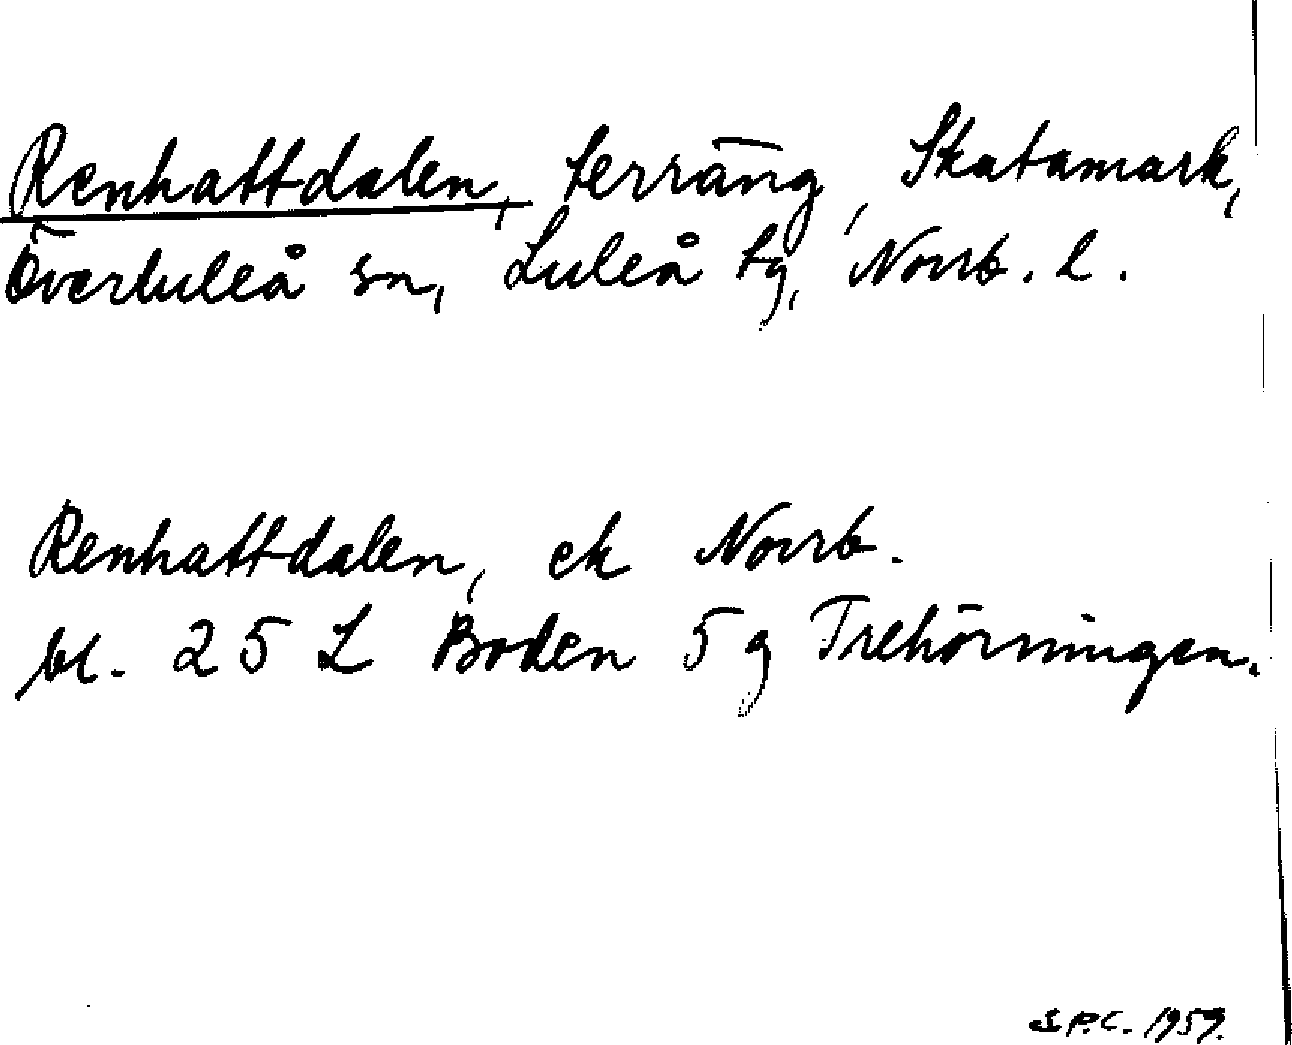 Renhattdalen, terräng, Skatamark,
Överluleå sn, Luleå tg, Norrb. l.
Renhattdalen, ek Norrb.
bl. 25 L Boden 5 g Trehörningen.
S.P.C. 1959.